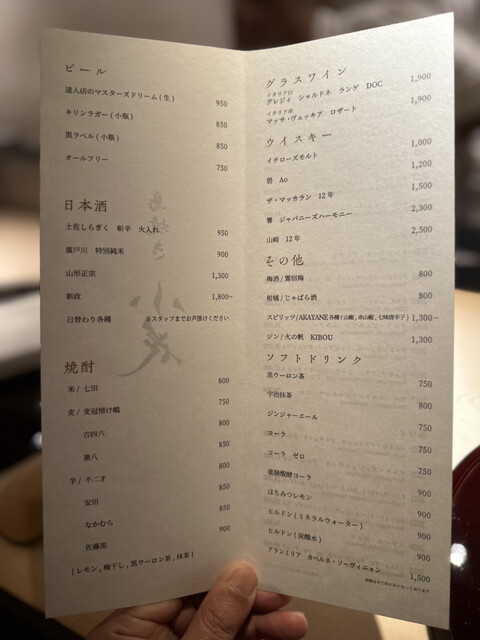 ビール
達人店のマスターズドリーム(生) 950
キリンラガー(小瓶) 850
黒ラベル(小瓶) 850
オールフリー 750
日本酒
土佐しらぎく 斬辛 火入れ 950
廣戸川 特別純米 900
山形正宗 1,300
新政 1,800~
日替わり各種 ※スタッフまでお声掛けください
焼酎
米/七田 800
麦/麦冠情け嶋 750
吉四六 800
兼八 850
芋/不二才 800
安田 850
なかむら 850
佐藤黒 900
[レモン,梅干し,黒ウーロン茶,抹茶]
グラスワイン
イタリア白
グレジィ シャルドネ ランゲ DOC 1,900
イタリア赤
マッサ・ヴェッキア ロザート 1,900
ウイスキー
イチローズモルト 1,000
碧 Ao 1,200
ザ・マッカラン 12年 1,500
響 ジャパニーズハーモニー 2,300
山崎 12年 2,500
その他
梅酒/鶯宿梅 800
柑橘/じゃばら酒 800
スピリッツ/AKAYANE各種(山椒,赤山椒,七味唐辛子) 1,300~
ジン/火の帆 KIBOU 1,300
ソフトドリンク
黒ウーロン茶 750
宇治抹茶 800
ジンジャーエール 750
コーラ 750
コーラ ゼロ 750
薬膳醗酵コーラ 900
はちみつレモン 900
ヒルドン(ミネラルウォーター) 900
ヒルドン(炭酸水) 900
アラン ミリア カベルネ・ソーヴィニョン 1,500